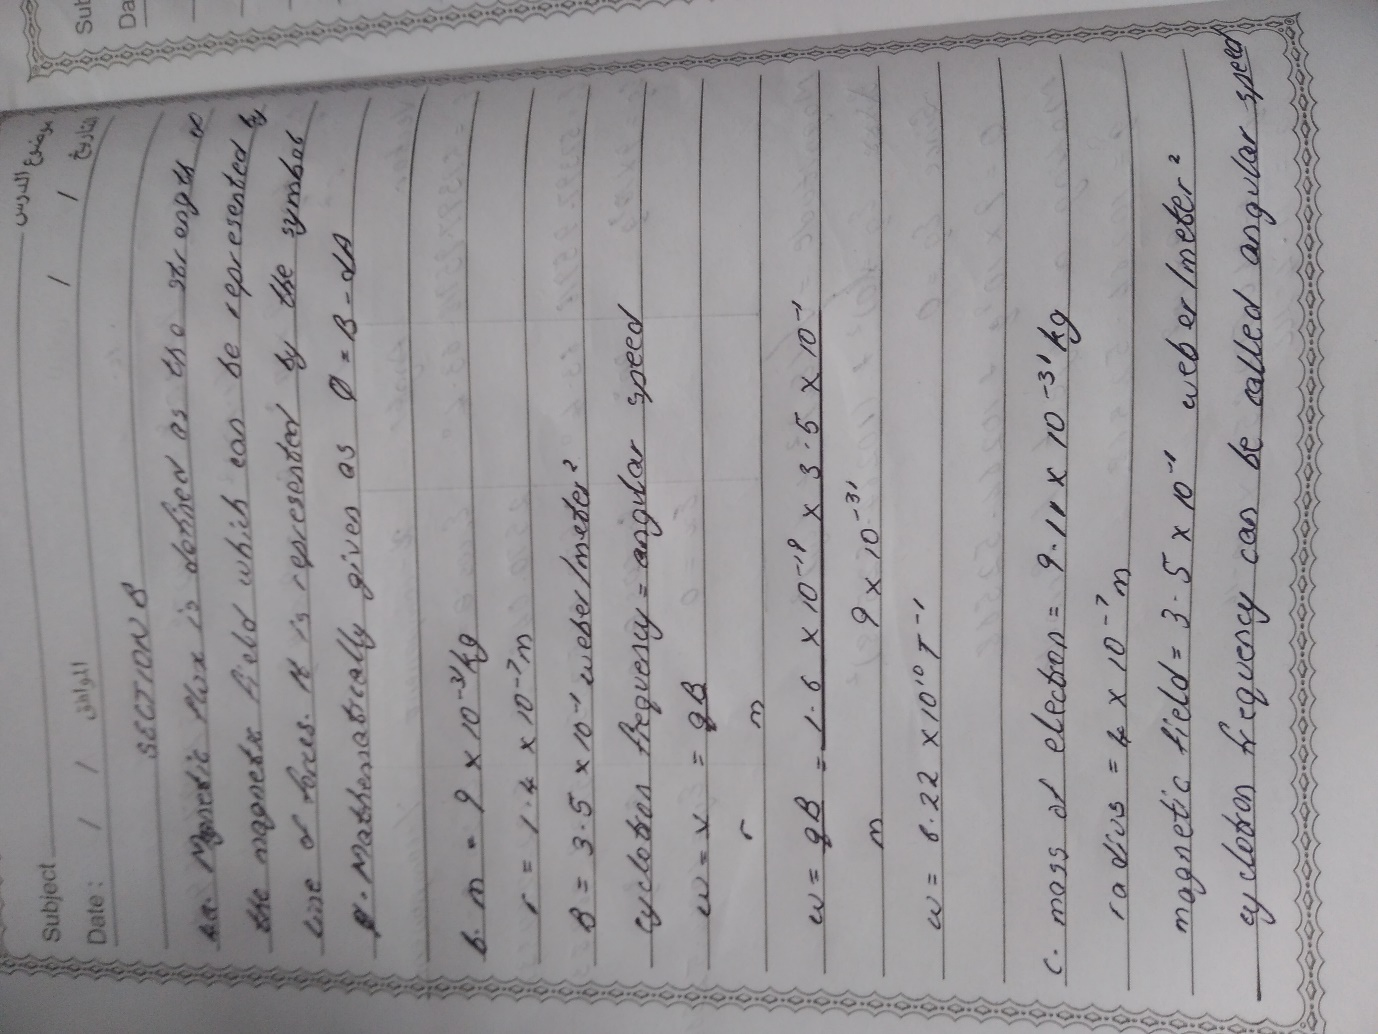 Subject
موضوع الدرس
Date: / / الموافق / / التاريخ
SECTION B
4a. Magnetic flux is defined as the strength of
the magnetic field which can be represented by
line of forces. It is represented by the symbol
Φ. Mathematically given as Φ = B-dA
b. m = 9 x 10⁻³¹kg
r = 1.4 x 10⁻⁷m
B = 3.5 x 10⁻¹ weber/meter²
cyclotron frequency = angular speed
w = v = qB
r m
w = qB = 1.6 x 10⁻¹⁹ x 3.5 x 10⁻¹
m 9 x 10⁻³¹
w = 6.22 x 10¹⁰ T⁻¹
c. mass of electron = 9.11 x 10⁻³¹kg
radius = 4 x 10⁻⁷m
magnetic field = 3.5 x 10⁻¹ weber/meter²
cyclotron frequency can be called angular speed
Sub
Da